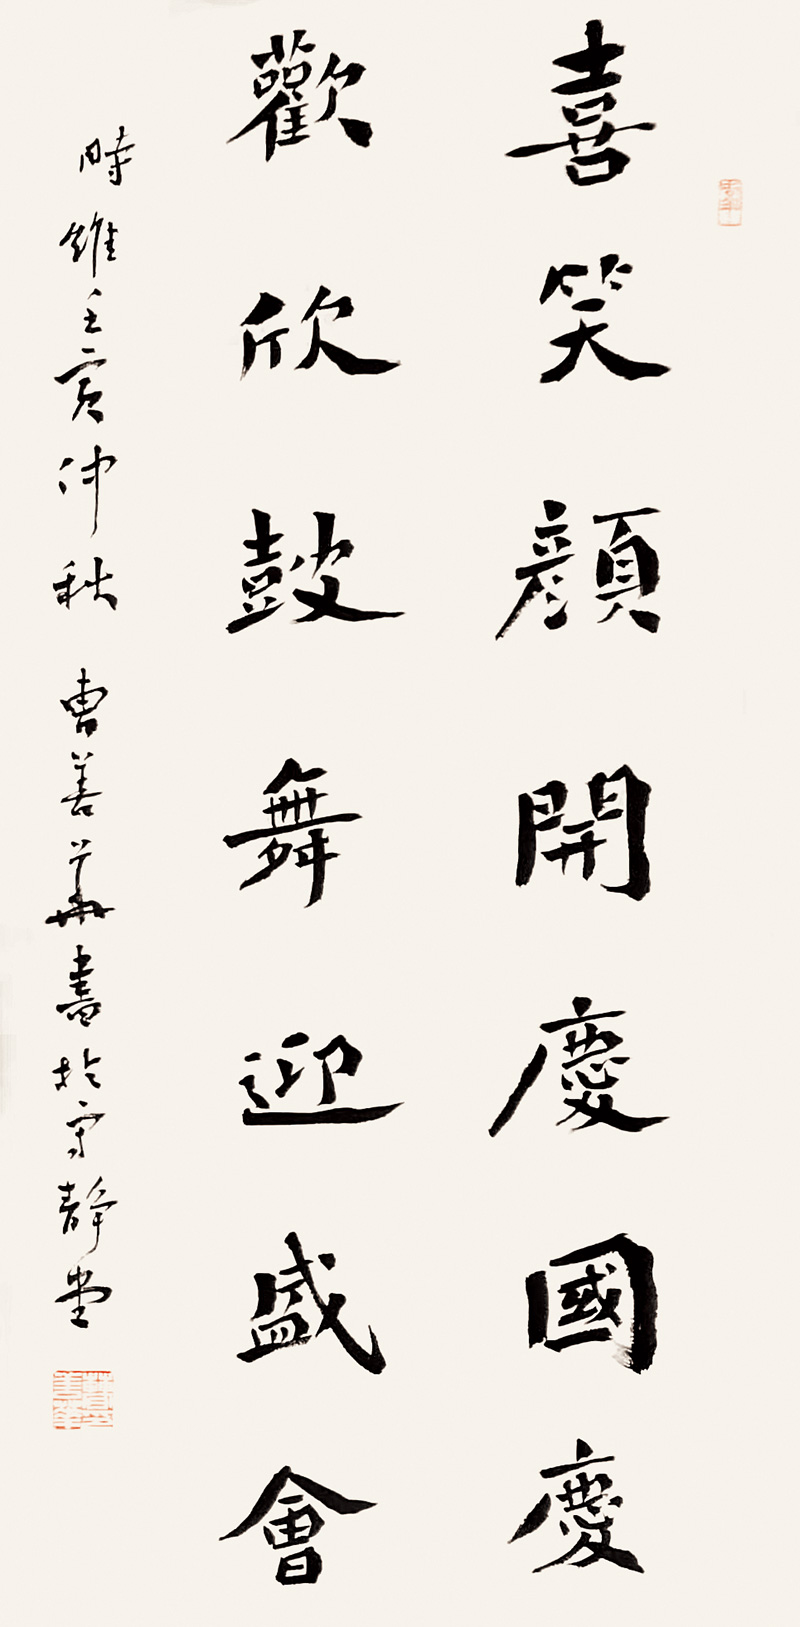 喜笑顏開慶國慶
歡欣鼓舞迎盛會
時維壬寅仲秋 曹善華書於寧靜堂